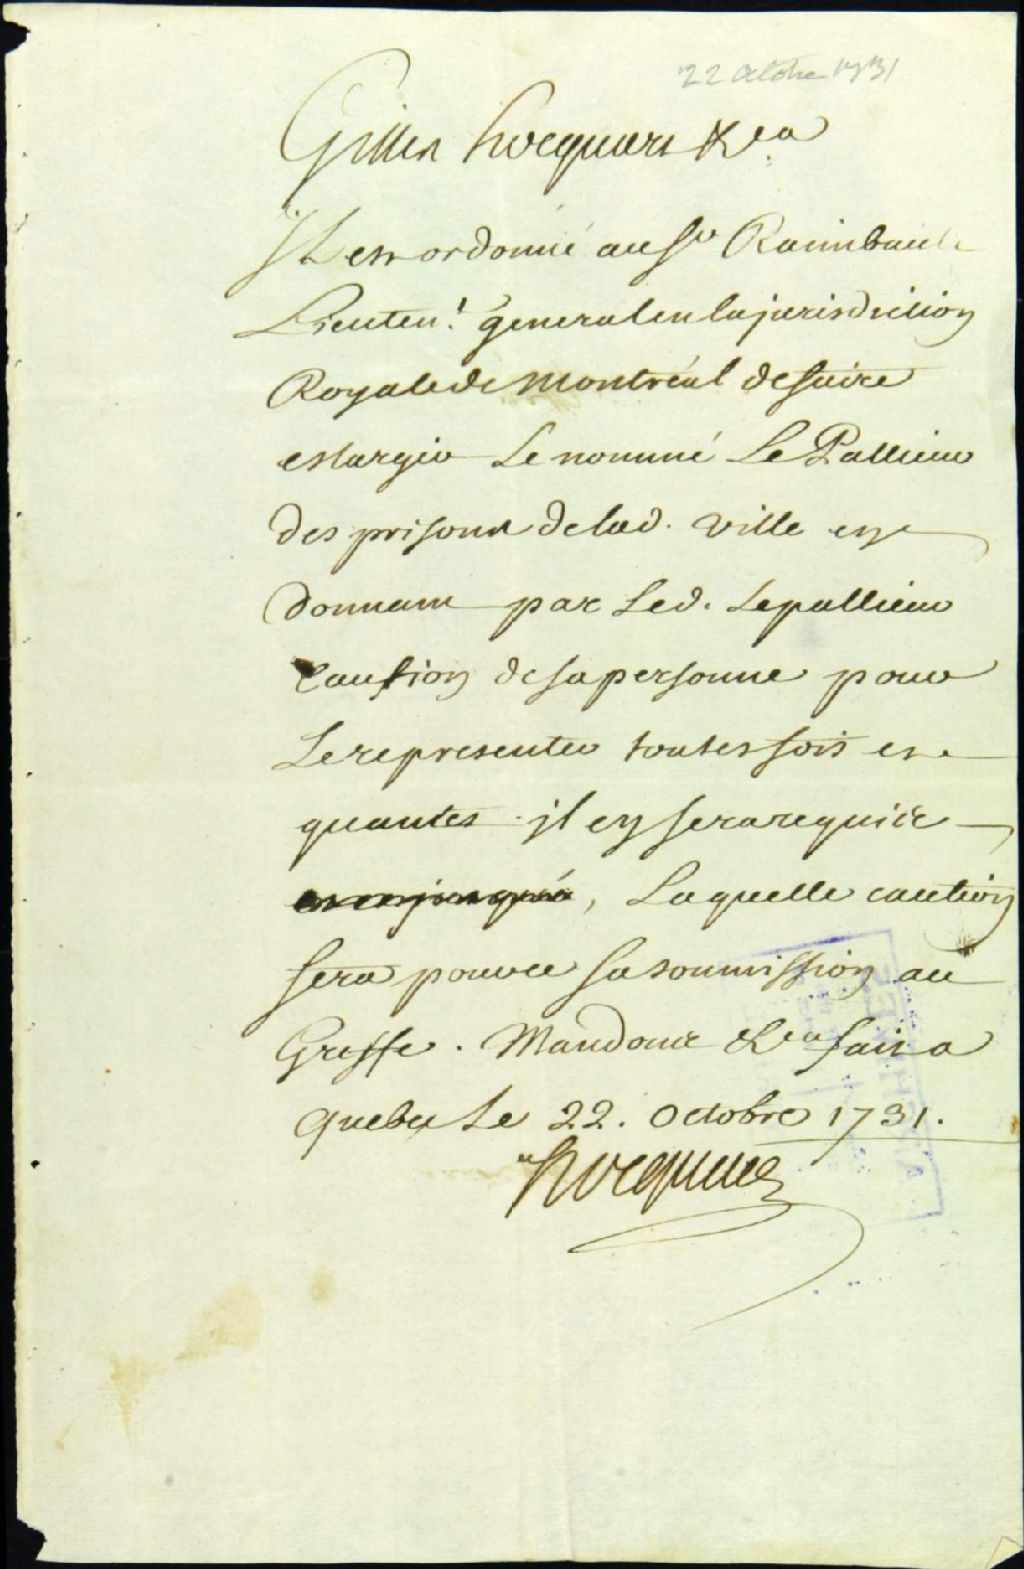 22 Octobre 1731
Gilles hocquart &ca
Il est ordonné au Sr Raimbault
Lieutent. general en la jurisdiction
Royale de Montréal de faire
eslargir le nommé Le Pallieur
des prisons de lad. ville en
donnant par led. Lepallieur
caution de sa personne pour
le representer toutes fois et
quantes il en sera requis
, Laquelle caution
fera pour ce sa soumission au
Greffe. Mandons &ca fait a
Quebec le 22. Octobre 1731.
hocquart
ARCHIVES